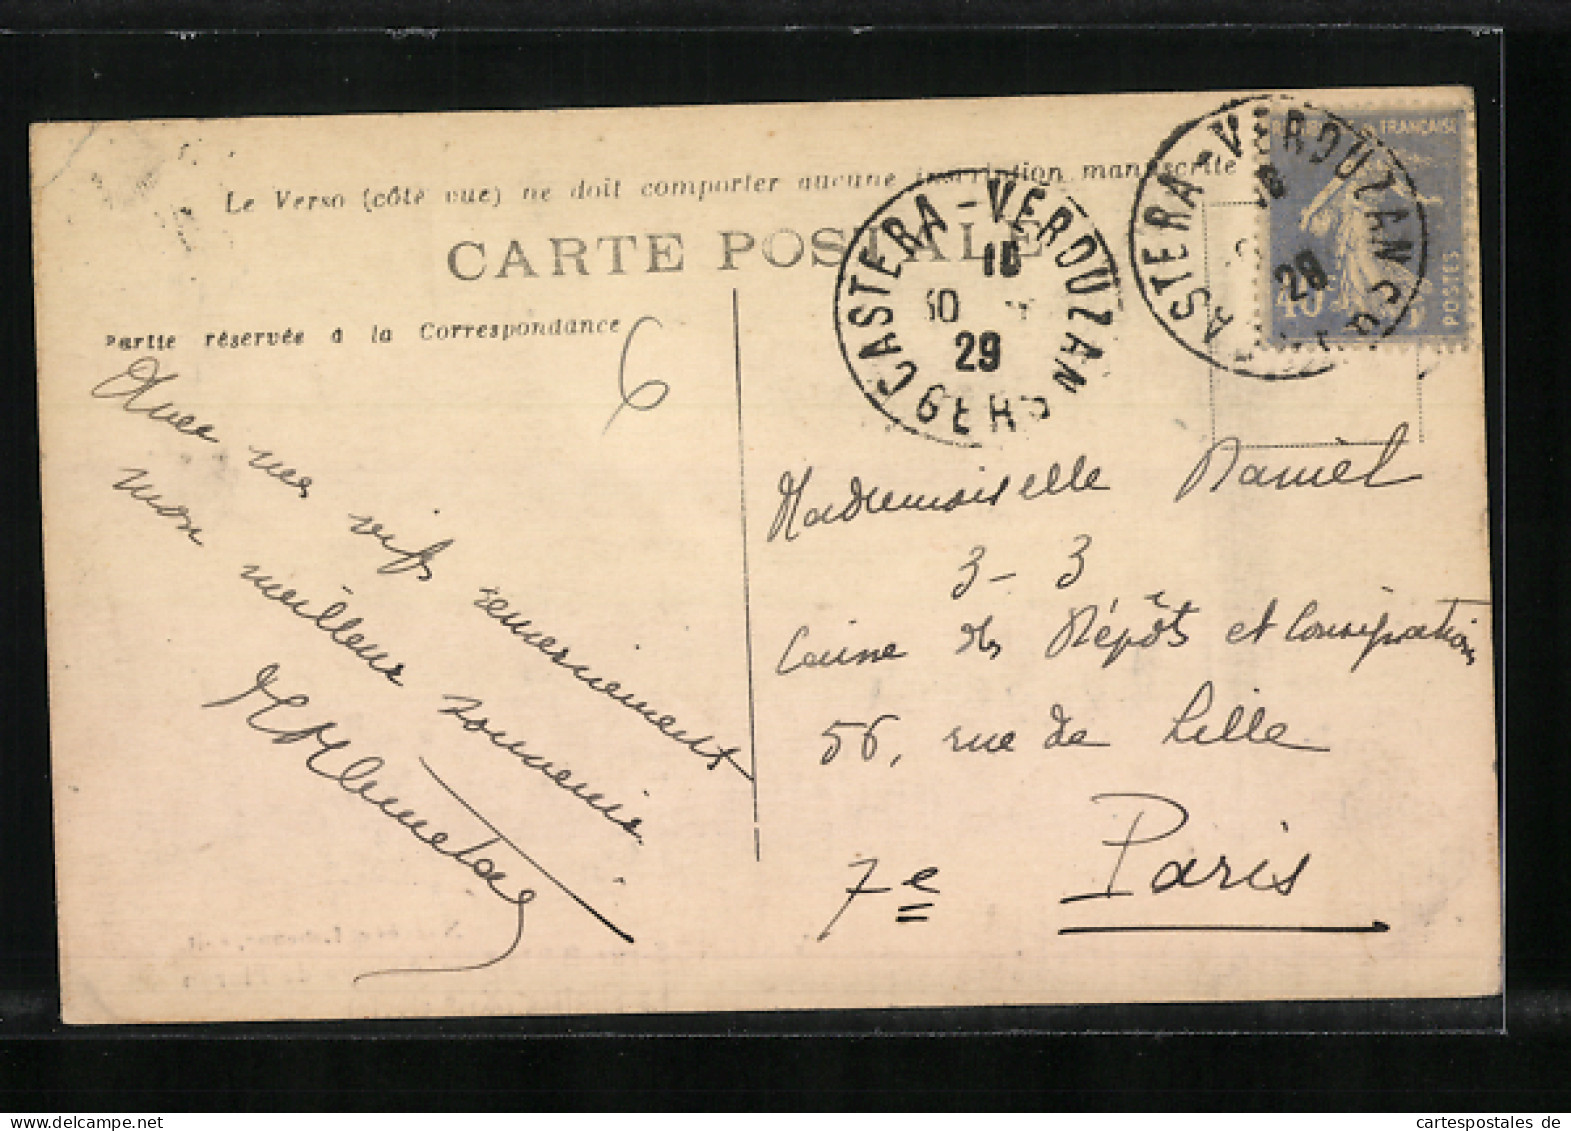 Le Verso (côté vue) ne doit comporter aucune inscription manuscrite
CARTE POSTALE
Partie réservée à la Correspondance
6
CASTERA-VERDUZAN
GERS
29
ASTERA-VERDUZAN
29
FRANÇAISE
POSTES
40
Avec mes vifs remerciements
mon meilleur souvenir
Mademoiselle Daniel
3-3
Caisse des Dépôts et Consignations
56, rue de Lille
7e Paris
cartespostales de